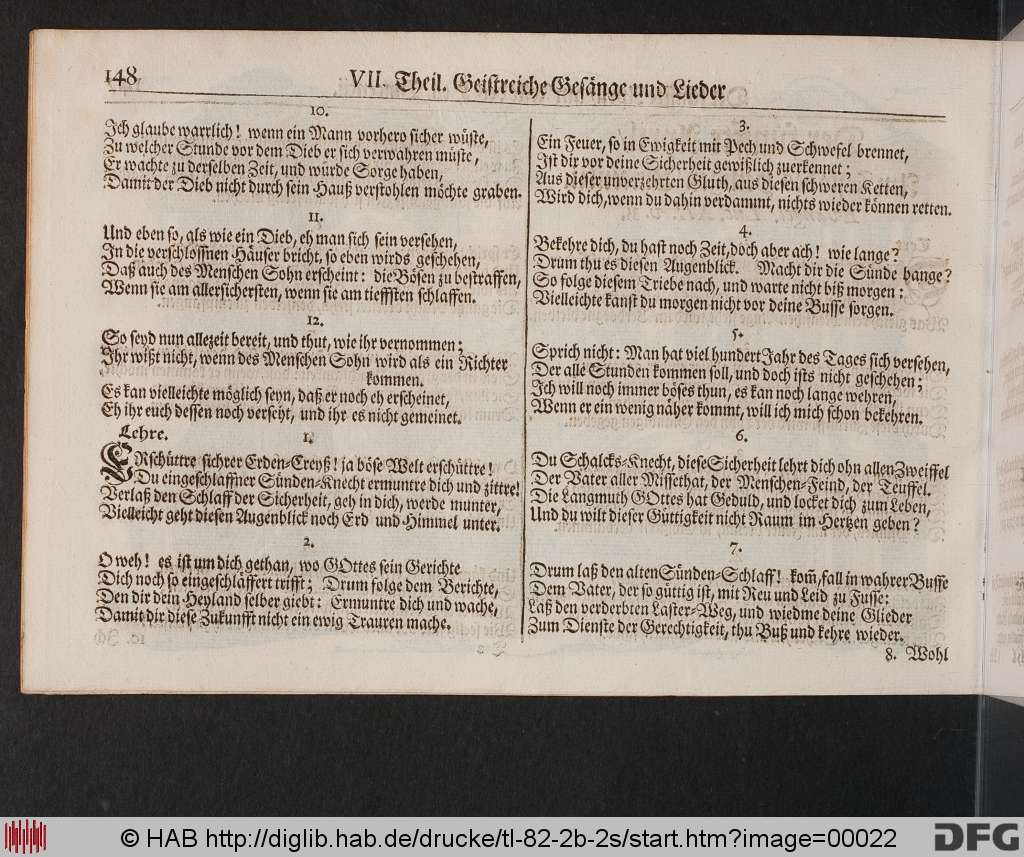 148 VII. Theil. Geistreiche Gesänge und Lieder
10.
Ich glaube warrlich! wenn ein Mann vorhero sicher wüste,
Zu welcher Stunde vor dem Dieb er sich verwahren müste,
Er wachte zu derselben Zeit, und würde Sorge haben,
Damit der Dieb nicht durch sein Hauß verstohlen möchte graben.
11.
Und eben so, als wie ein Dieb, eh man sich sein versehen,
In die verschloßnen Häuser bricht, so eben wirds geschehen,
Daß auch des Menschen Sohn erscheint: die Bösen zu bestraffen,
Wenn sie am allersichersten, wenn sie am tieffsten schlaffen.
12.
So seyd nun allezeit bereit, und thut, wie ihr vernommen;
Ihr wißt nicht, wenn des Menschen Sohn wird als ein Richter
kommen.
Es kan vielleichte möglich seyn, daß er noch eh erscheinet,
Eh ihr euch dessen noch verseht, und ihr es nicht gemeinet.
Lehre. 1.
ERschüttre sichrer Erden-Creyß! ja böse Welt erschüttre!
Du eingeschlaffner Sünden-Knecht ermuntre dich und zittre!
Verlaß den Schlaff der Sicherheit, geh in dich, werde munter,
Vielleicht geht diesen Augenblick noch Erd und Himmel unter.
2.
O weh! es ist um dich gethan, wo GOttes sein Gerichte
Dich noch so eingeschläffert trifft; Drum folge dem Berichte,
Den dir dein Heyland selber giebt: Ermuntre dich und wache,
Damit dir diese Zukunfft nicht ein ewig Trauren mache.
3.
Ein Feuer, so in Ewigkeit mit Pech und Schwefel brennet,
Ist dir vor deine Sicherheit gewißlich zuerkennet;
Aus dieser unverzehrten Gluth, aus diesen schweren Ketten,
Wird dich, wenn du dahin verdammt, nichts wieder können retten.
4.
Bekehre dich, du hast noch Zeit, doch aber ach! wie lange?
Drum thu es diesen Augenblick. Macht dir die Sünde bange?
So folge diesem Triebe nach, und warte nicht biß morgen:
Vielleichte kanst du morgen nicht vor deine Busse sorgen.
5.
Sprich nicht: Man hat viel hundert Jahr des Tages sich versehen,
Der alle Stunden kommen soll, und doch ists nicht geschehen;
Ich will noch immer böses thun, es kan noch lange wehren,
Wenn er ein wenig näher kommt, will ich mich schon bekehren.
6.
Du Schalcks-Knecht, diese Sicherheit lehrt dich ohn allen Zweiffel
Der Vater aller Missethat, der Menschen-Feind, der Teuffel.
Die Langmuth GOttes hat Geduld, und locket dich zum Leben,
Und du wilt dieser Güttigkeit nicht Raum im Hertzen geben?
7.
Drum laß den alten Sünden-Schlaff! kom̃, fall in wahrer Busse
Dem Vater, der so güttig ist, mit Reu und Leid zu Fusse:
Laß den verderbten Laster-Weg, und wiedme deine Glieder
Zum Dienste der Gerechtigkeit, thu Buß und kehre wieder.
8. Wohl
© HAB http://diglib.hab.de/drucke/tl-82-2b-2s/start.htm?image=00022
DFG